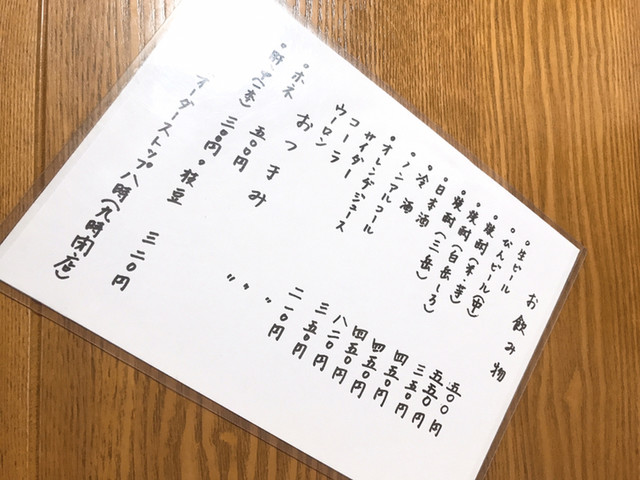 お飲み物
・生ビール 五〇〇円
・びんビール(中) 五五〇円
・焼酎(米・芋) 三五〇円
・焼酎(白岳しろ) 四五〇円
・焼酎(三岳) 四五〇円
・日本酒 四五〇円
・冷酒 八二〇円
・ノンアルコール 三五〇円
・オレンヂジュース 二一〇円
サイダー 〃
コーラ 〃
ウーロン 〃
おつまみ
・ホネ 五〇〇円
(一本) 三〇〇円 ・枝豆 三二〇円
オーダーストップ八時(九時閉店)